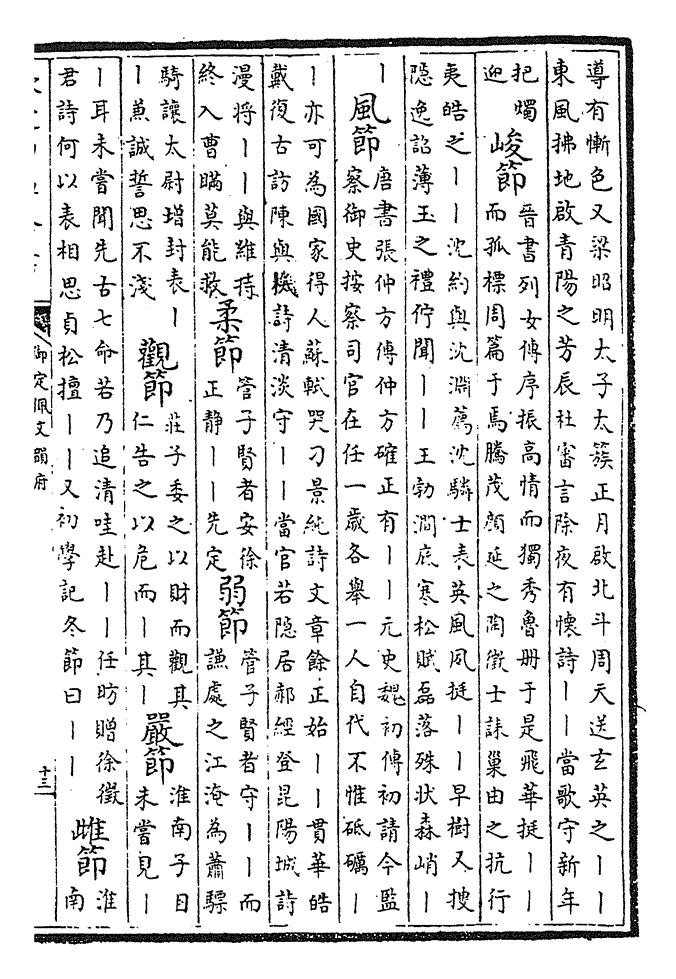 導有慚色又梁昭明太子太簇正月啟北斗周天送玄英之丨丨
東風拂地啟青陽之芳辰杜審言除夜有懷詩丨丨當歌守新年
把燭
迎
峻節
晉書列女傳序振高情而獨秀魯冊于是飛華挺丨丨
而孤標周篇于焉騰茂顏延之陶徵士誄巢由之抗行
夷皓之丨丨沈約與沈淵薦沈驎士表英風夙挺丨丨早樹又搜
隱逸詔薄玉之禮佇聞丨丨王勃澗底寒松賦磊落殊狀森峭丨
丨
風節
唐書張仲方傳仲方確正有丨丨元史魏初傳初請今監
察御史按察司官在任一歲各舉一人自代不惟砥礪丨
丨亦可為國家得人蘇軾哭刁景純詩文章餘正始丨丨貫華皓
戴復古訪陳與機詩清淡守丨丨當官若隱居郝經登昆陽城詩
漫將丨丨與維持
終入曹瞞莫能救
柔節
管子賢者安徐
正静丨丨先定
弱節
管子賢者守丨丨而
謙處之江淹為蕭驃
騎讓太尉增封表丨
丨兼誠誓思不淺
觀節
莊子委之以財而觀其
仁告之以危而丨其丨
嚴節
淮南子目
未嘗見丨
丨耳未嘗聞先古七命若乃追清哇赴丨丨任昉贈徐徵
君詩何以表相思貞松擅丨丨又初學記冬節曰丨丨
雌節
淮
南
御定佩文韻府
十三